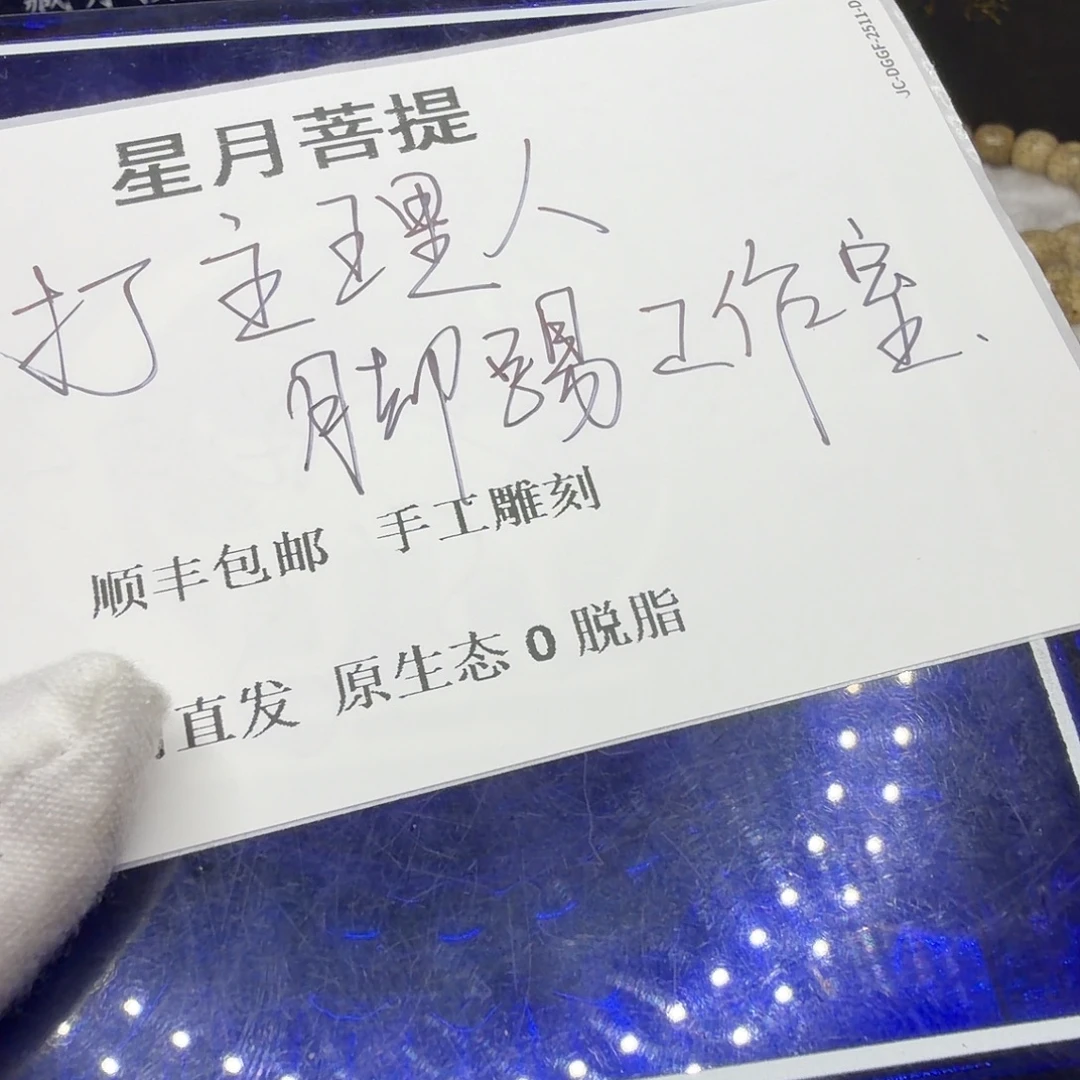 星月菩提
打主理人
脚踢工作室.
顺丰包邮 手工雕刻
直发 原生态0脱脂
JC-DGGF-2511-D